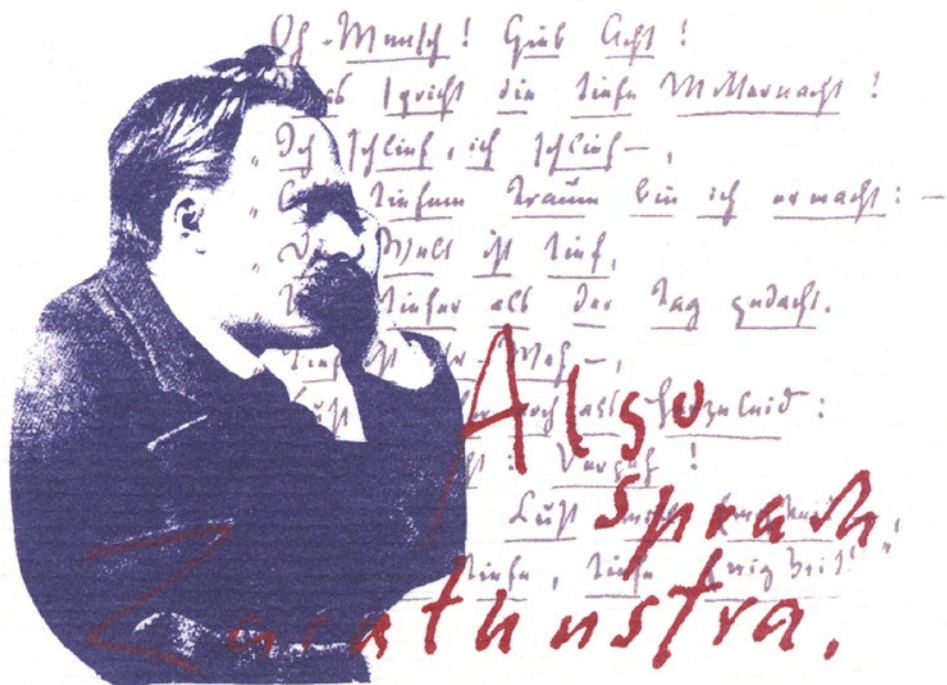 Oh Mensch! Gieb Acht!
spricht die tiefe Mitternacht!
„Ich schlief, ich schlief —,
tiefem Traum bin ich erwacht: —
Welt ist tief,
tiefer als der Tag gedacht.
Tief ist ihr Weh —,
Lust noch als Herzeleid:
Vergeh!
Lust
tiefe, tiefe Ewigkeit!"
Also
sprach
Zarathustra.